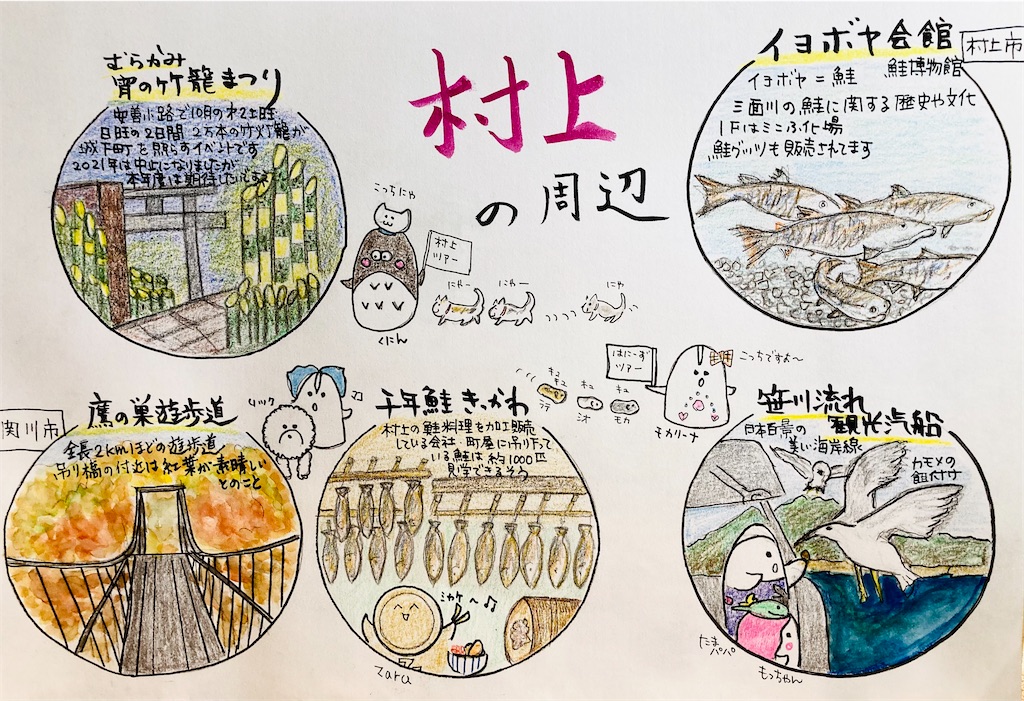 村上
の周辺
むらかみ
宵の竹籠まつり
安善小路で10月の第2土曜
日曜の2日間 2万本の竹灯籠が
城下町を照らすイベントです
2021年は中止になりましたが
本年度は期待したいです
こっちにゃ
村上
ツアー
にゃー
にゃー
にゃ
くにん
イヨボヤ会館
村上市
鮭博物館
イヨボヤ=鮭
三面川の鮭に関する歴史や文化
1Fはミニふ化場
鮭グッツも販売されてます
関川市
鷹の巣遊歩道
全長2kmほどの遊歩道
吊り橋の付近は紅葉が素晴しい
とのこと
リック
千年鮭きっかわ
村上の鮭料理を加工販売
している会社・町屋に吊り下って
いる鮭は約1000匹
見学できるそう
ミャケ〜♫
zaru
はにーず
ツアー
こっちですよ〜
キュ
キュ
キュ
キュ
ラテ
シオ
モカ
モカリーナ
笹川流れ
観光汽船
日本百景の
美しい海岸線
カモメの
餌付け
たま
パパ
もっちゃん